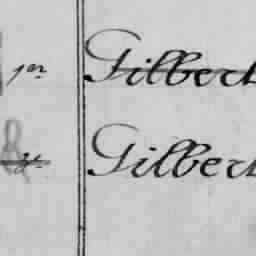 jnr Gilbert
& Gilbert